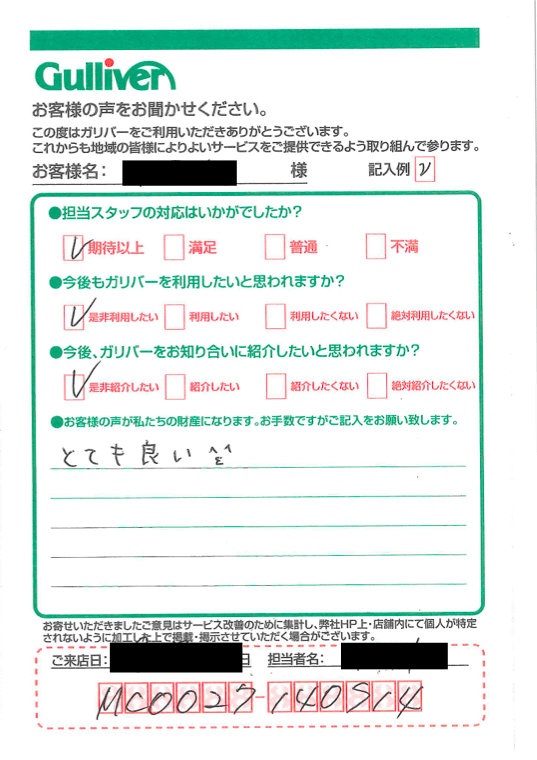 Gulliver
お客様の声をお聞かせください。
この度はガリバーをご利用いただきありがとうございます。
これからも地域の皆様によりよいサービスをご提供できるよう取り組んで参ります。
お客様名: 様 記入例 レ
●担当スタッフの対応はいかがでしたか?
レ 期待以上 満足 普通 不満
●今後もガリバーを利用したいと思われますか?
レ 是非利用したい 利用したい 利用したくない 絶対利用したくない
●今後、ガリバーをお知り合いに紹介したいと思われますか?
レ 是非紹介したい 紹介したい 紹介したくない 絶対紹介したくない
●お客様の声が私たちの財産になります。お手数ですがご記入をお願い致します。
とても良い ^ε^
お寄せいただきましたご意見はサービス改善のために集計し、弊社HP上・店舗内にて個人が特定
されないように加工した上で掲載・掲示させていただく場合がございます。
ご来店日: 日 担当者名:
MC0027-140514